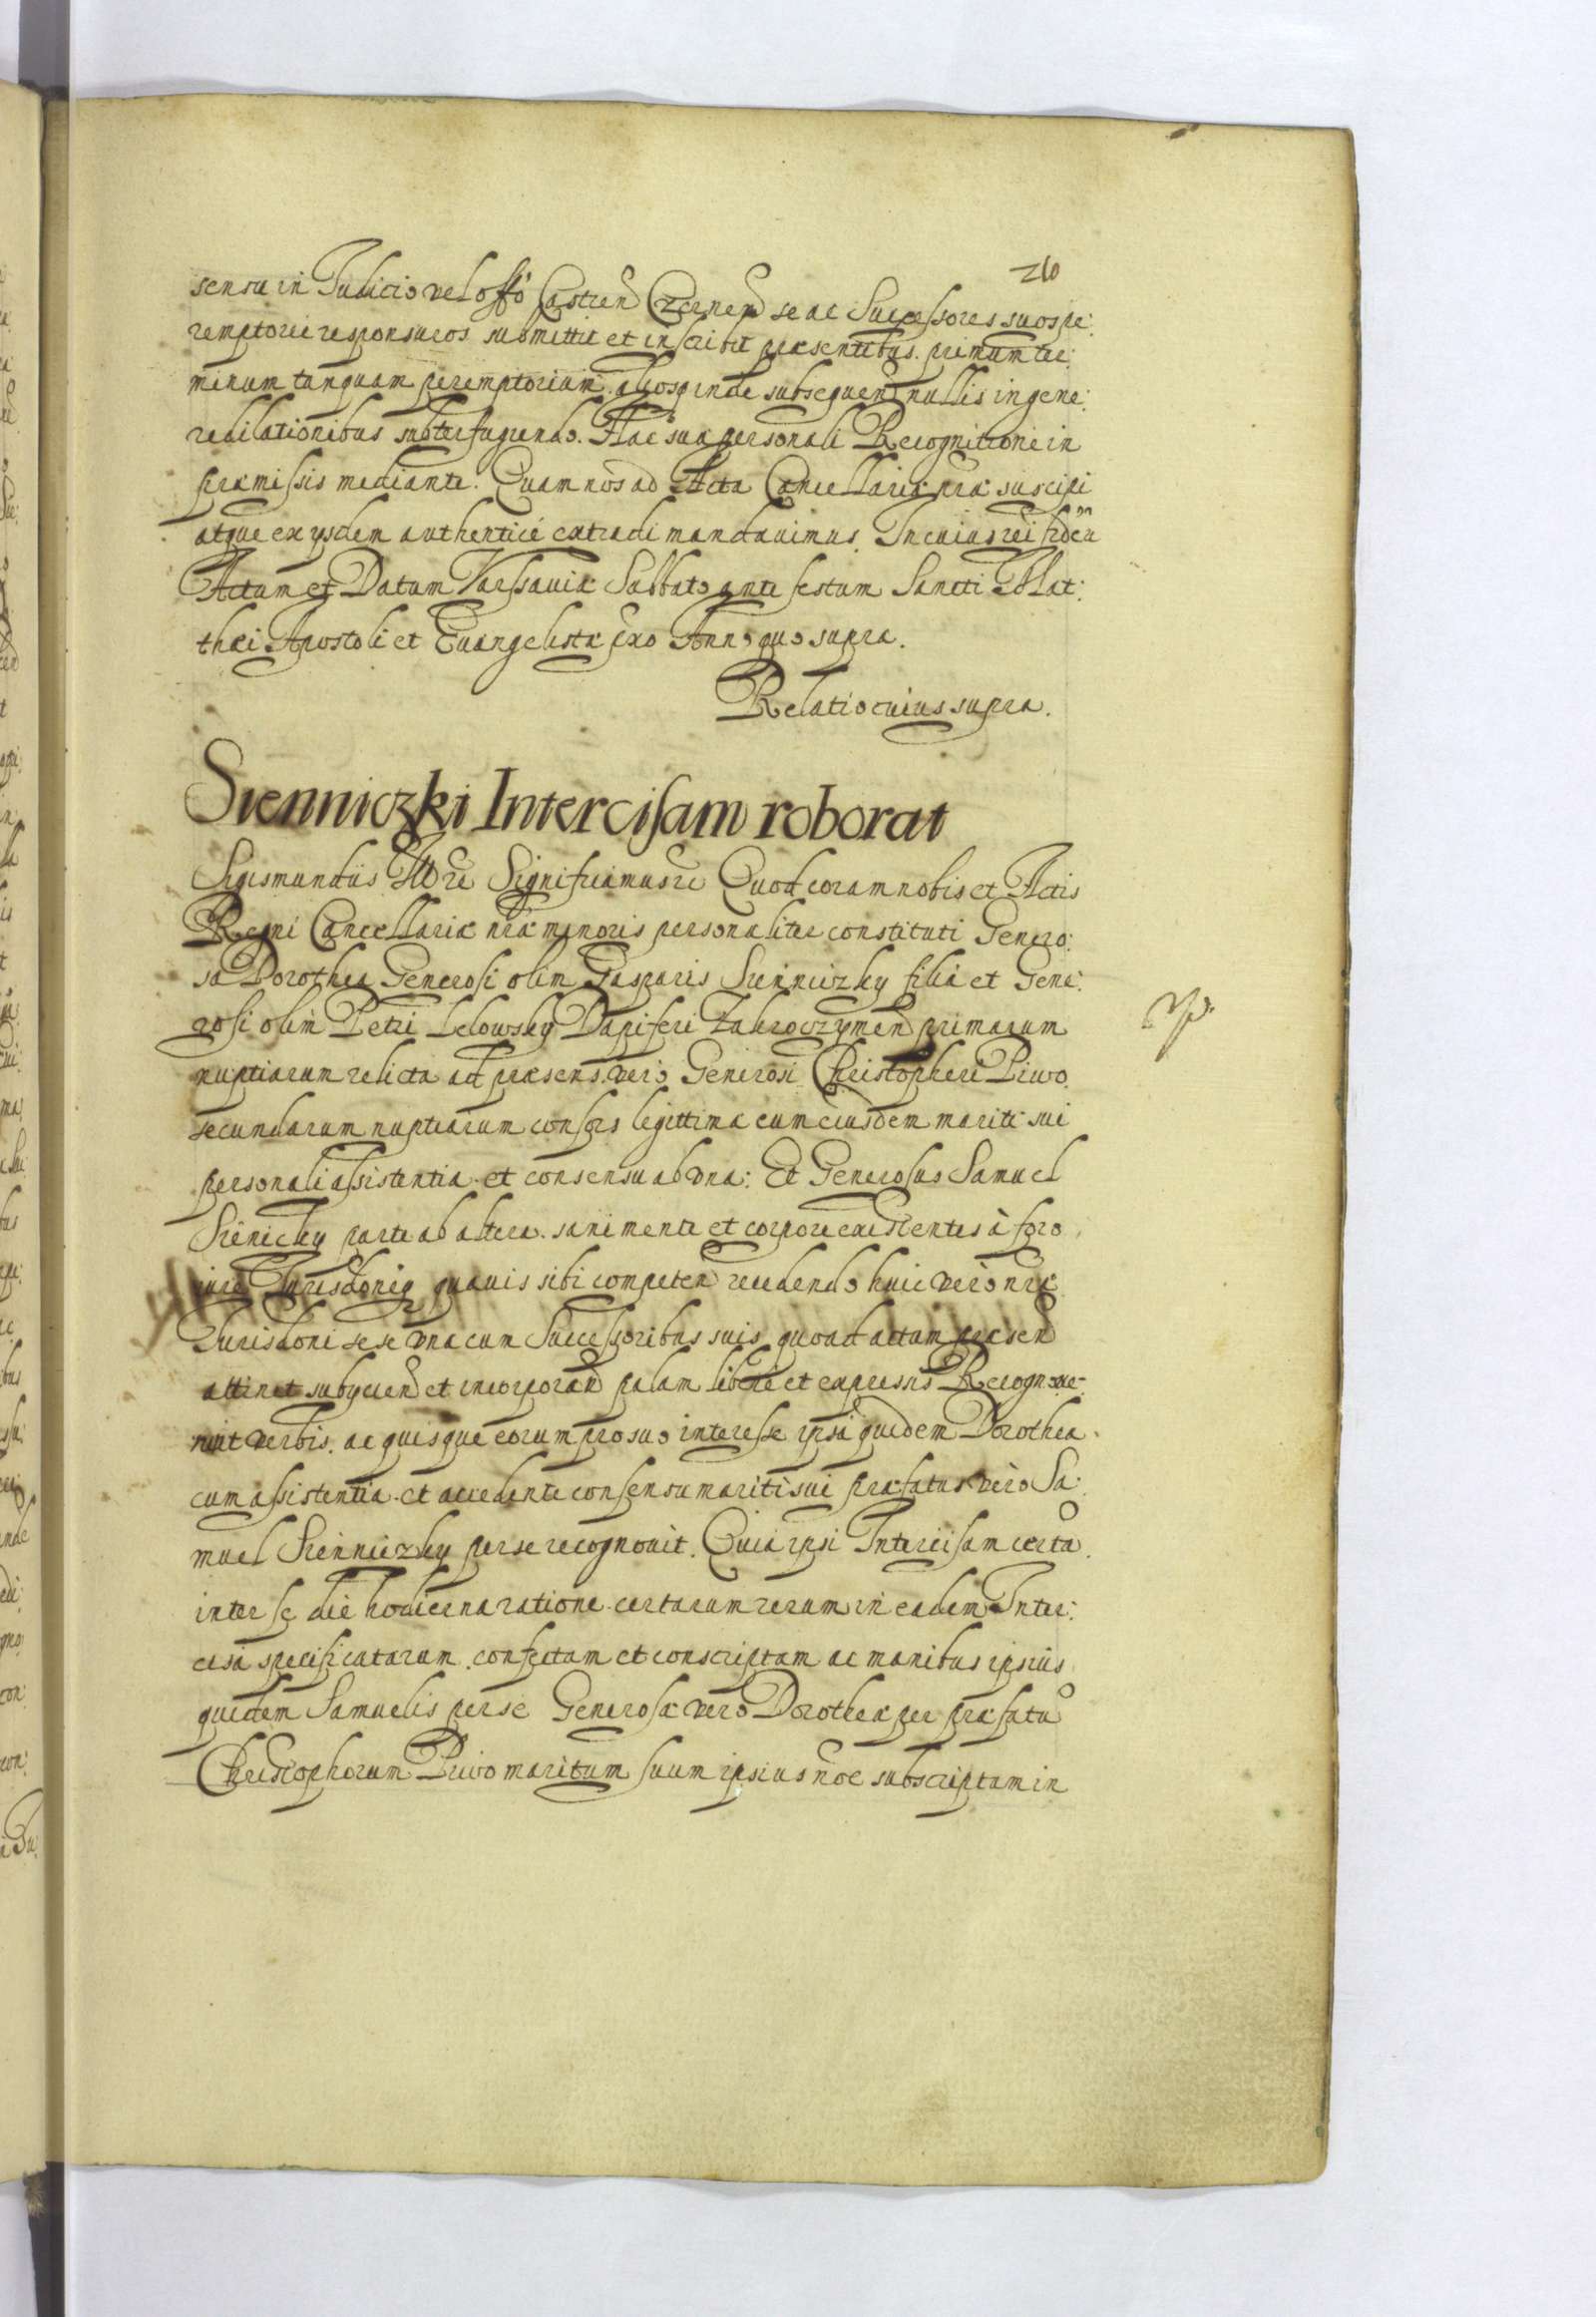 210
sensu in Iudicio vel offo Castren Czernen se ac Successores suos pe:
remptorie responsuros submittit et inscribit præsentibus. primum ter:
minum tanquam peremptorium aliosq inde subsequen nullis in gene:
re dilationibus subterfugiendo. Hac sua personali Recognitione in
præmissis mediante. Quam nos ad Acta Cancellariæ nræ suscipi
atque ex ysdem authenticè extradi mandauimus. In cuius rei fidem
Actum et Datum Varssauiæ Sabbato ante festum Sancti Mat:
thæi Apostoli et Euangelistæ pxo Anno quo supra.
Relatio cuius supra.
Sienniczki Intercisam roborat
Sigismundus III etc Significamus etc Quod coram nobis et Actis
Regni Cancellariæ nræ minoris personaliter constituti Genero:
sa Dorothea Generosi olim Gasparis Sienniczky filia et Gene:
rosi olim Petri Lelowsky Dapiferi Zakroczymen primarum
nuptiarum relicta ad præsens vero Generosi Christopheri Piwo
secundarum nuptiarum consors legittima cum eiusdem mariti sui
personali assistentia et consensu ab vna: Et Generosus Samuel
Sienicky parte ab altera. sani mente et corpore existentes à foro
iure Iurisdoneq quauis sibi competen recedendo huic vero nræ
Iurisdoni sese vna cum Successoribus suis quoad actum præsen
attinet subyciend et incorporan palam liberè et expressis Recognoue-
runt verbis. ac quisque eorum pro suo interesse ipsa quidem Dorothea
cum assistentia et accedente consensu mariti sui præfatus vero Sa:
muel Sienniczky per se recognouit. Quia ipsi Intercisam certa
inter se die hodierna ratione certarum rerum in eadem Inter:
cisa specificatarum confectam et conscriptam ac manibus ipsius
quidem Samuelis per se Generosæ vero Dorotheæ per præfatu
Christophorum Piwo maritum suum ipsius noe subscriptam in